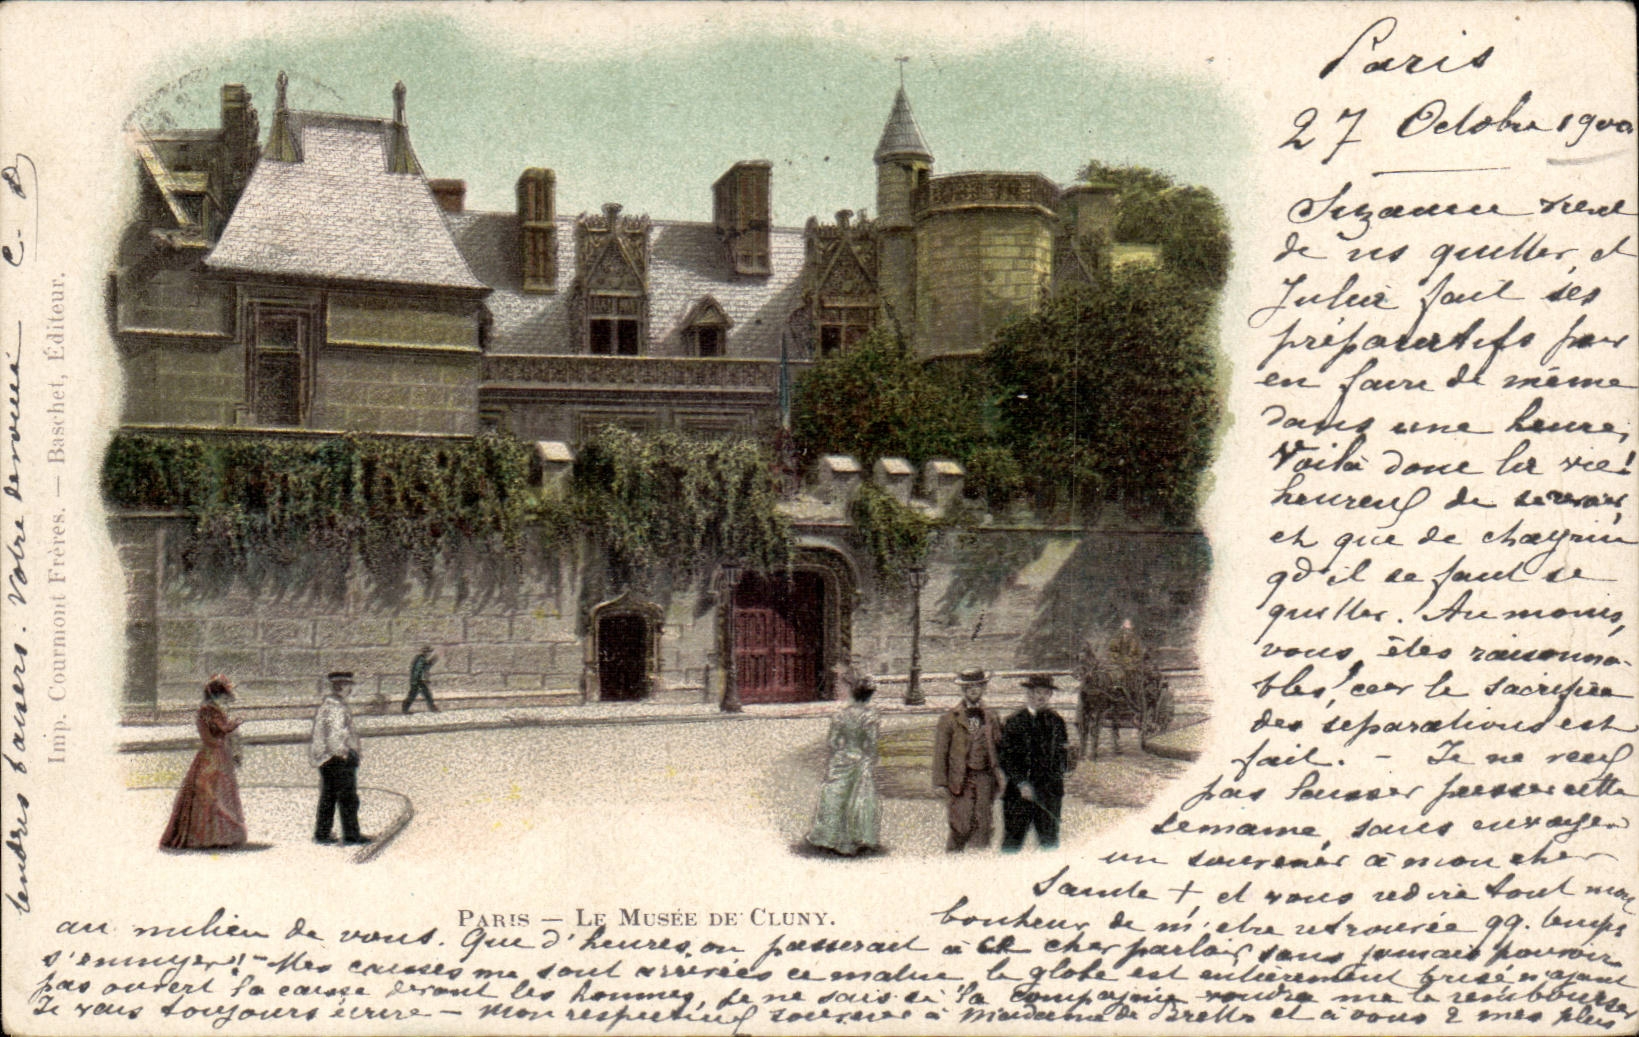 Paris
27 Octobre 1900
Suzanne vient
de ns quitter, et
Julia fait ses
préparatifs pour
en faire de même
dans une heure,
Voilà donc la vie!
heureux de se revoir,
et que de chagrin
qd il se faut se
quitter. Au moins,
vous, êtes raisonna-
bles, car le sacrifice
des séparations est
fait. - Je ne veux
pas laisser passer cette
semaine, sans envoyer
un souvenir à mon cher
Sainte +, et vous redire tout mon
bonheur de m'être retrouvée qq. temps
PARIS — LE MUSÉE DE CLUNY.
au milieu de vous. Que d'heures, on passerait à ce cher parloir sans jamais pouvoir
s'ennuyer! - Mes caisses me sont arrivées ce matin, le globe est entièrement brisé n'ayant
pas ouvert la caisse devant les hommes, je ne sais si la Compagnie voudra me le rembourser
Je vais toujours écrire - Mon respectueux souvenir à Madame de et à vous 2 mes plus
tendres baisers. Votre dévouée C. D
Imp. Courmont Frères. — Baschet, Éditeur.